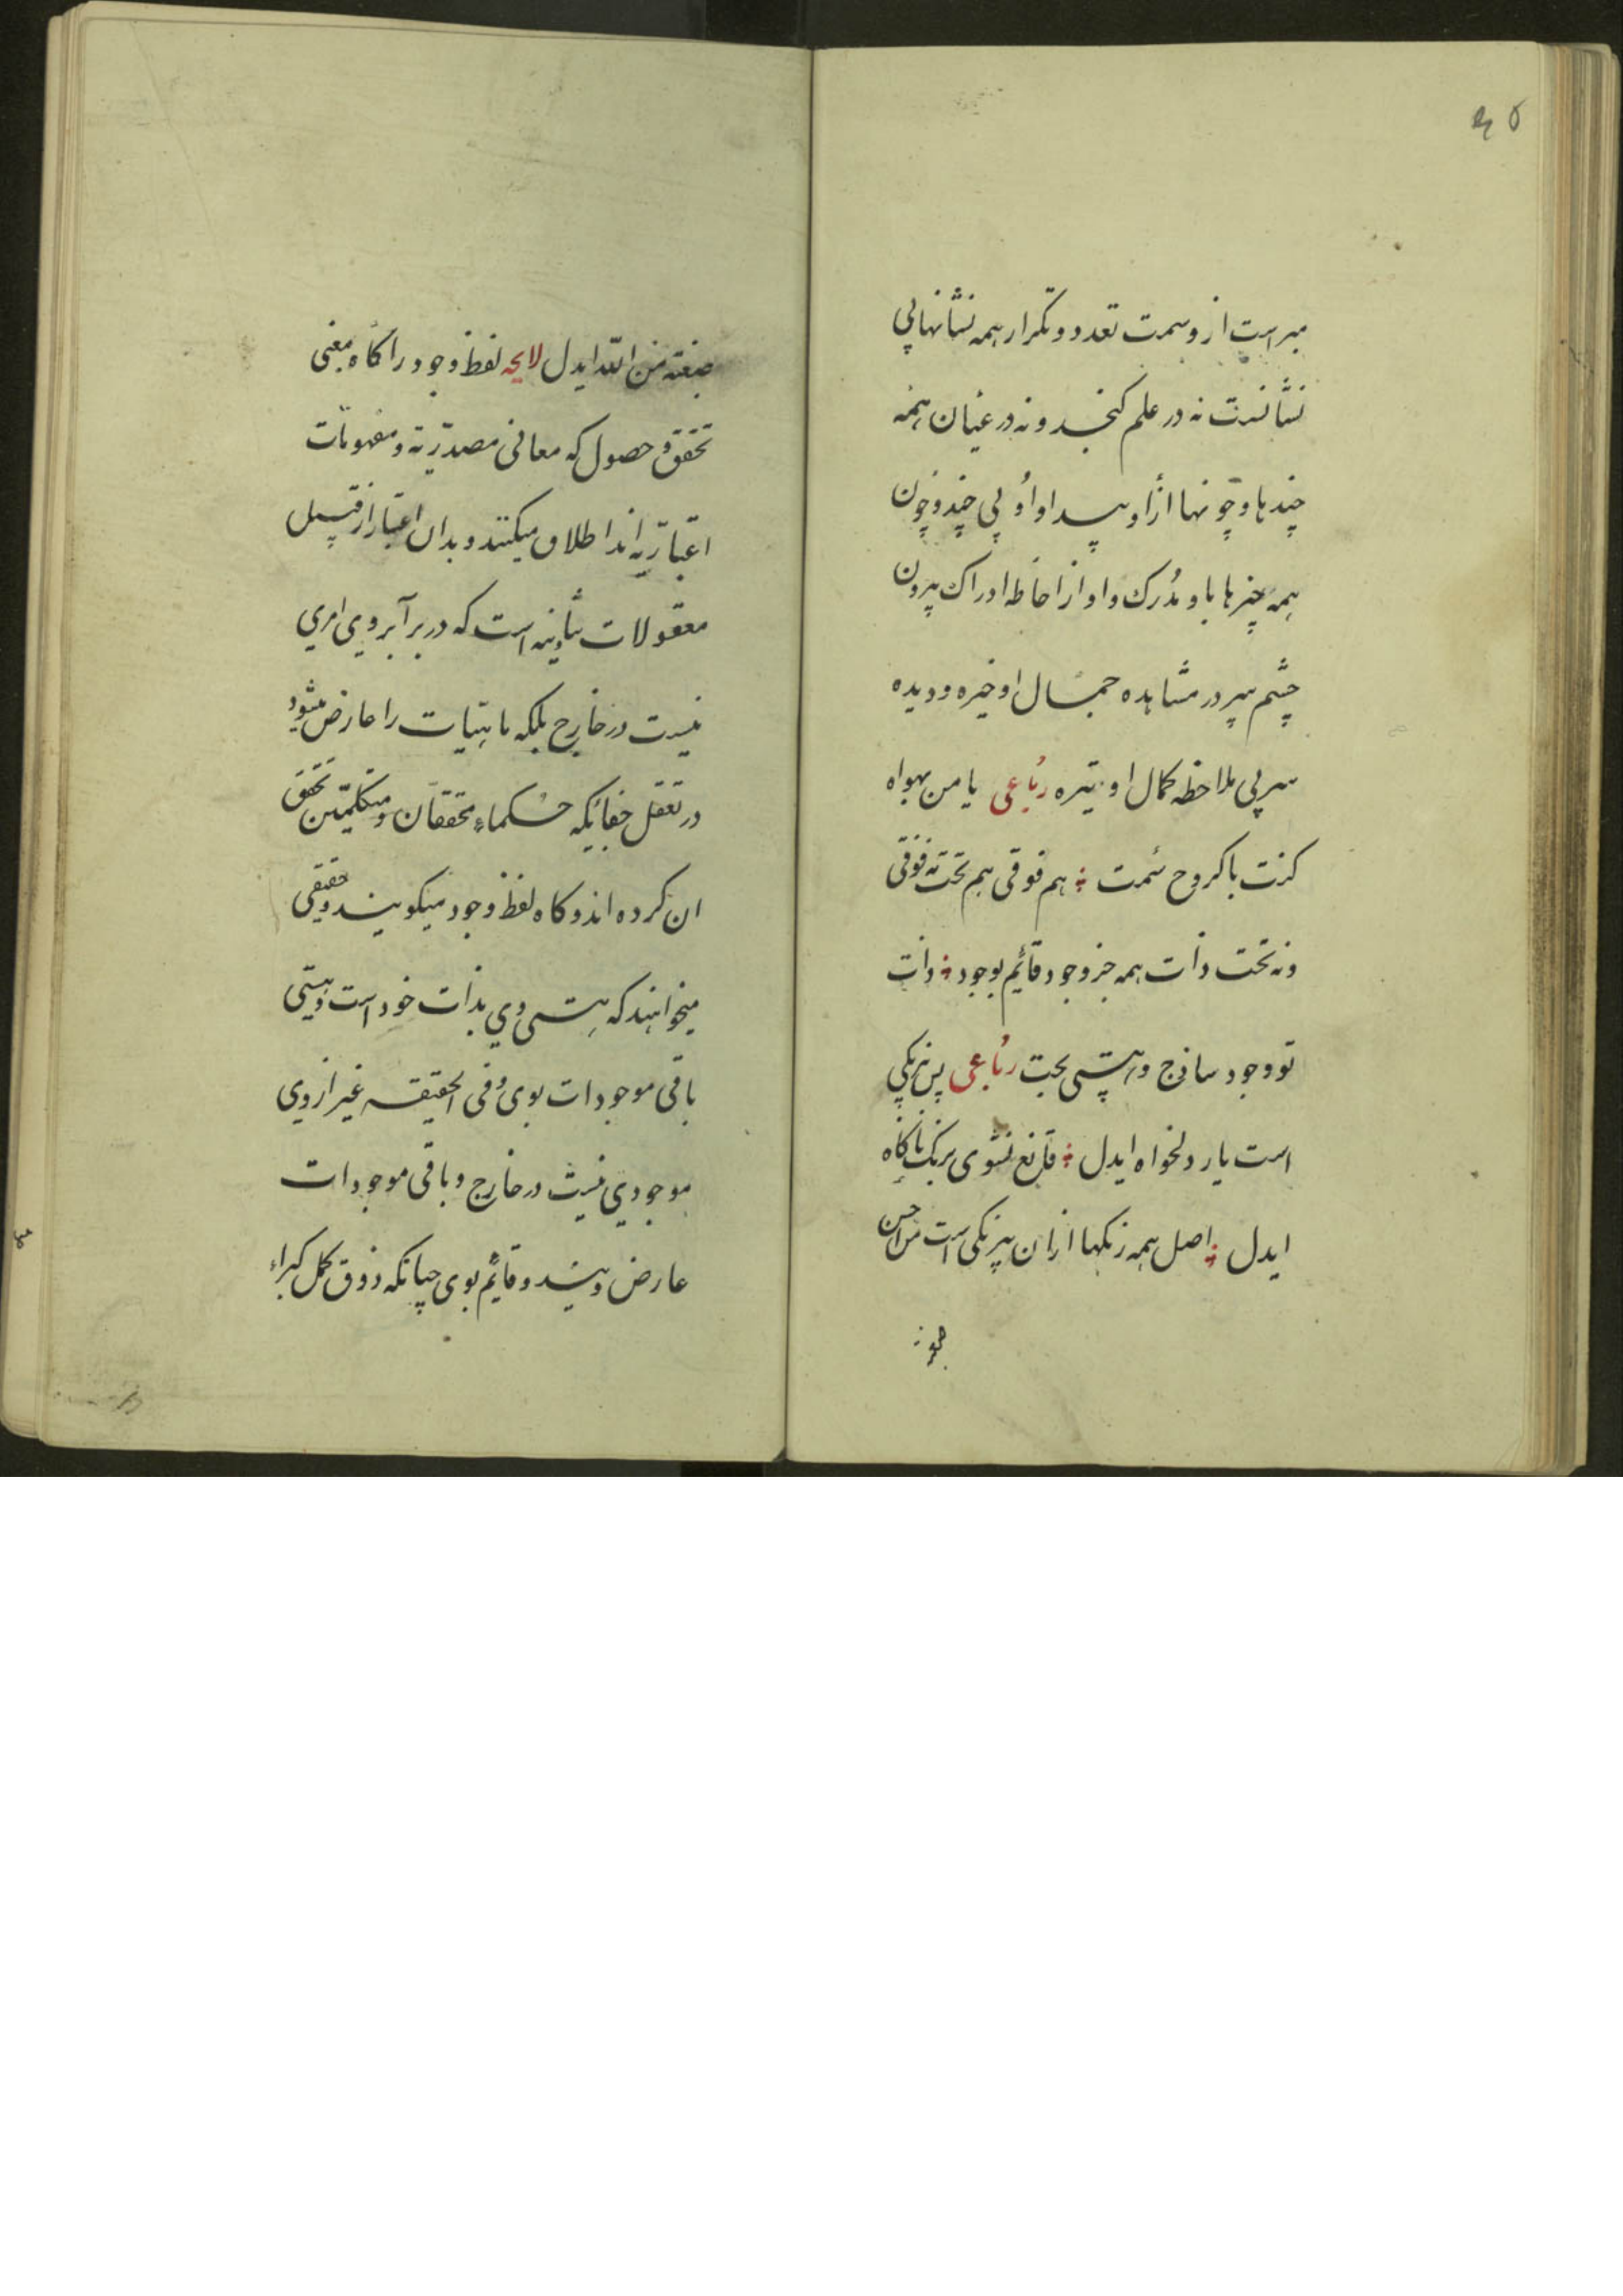 مبراست از وسمت تعدد و تکرار همه نشانها بی
نشانست نه در علم کنجد و نه در عیان همه
چندها و چونها ازاو پیدا و او بی چند و چون
همه چیزها باو مدرک و او از احاطه ادراک بیرون
چشم سر در مشاهده جمال او خیره و دیده
سر بی ملاحظه کمال او تیره رباعی یا من بهواه
کنت با کروح سمت هم فوقی هم تحت نه فوقی
ونه تحت ذات همه جز وجود قائم بوجود ذات
تو وجود ساذج و هستی بحت رباعی بس بیرنکی
است یار دلخواه ایدل قانع نشوی برنک ناکاه
ایدل اصل همه رنکها ازان بیرنکی است من احسن
صبغة من الله ایدل لایحه لفظ وجود را کاه بمعنی
تحقق و حصول که معانی مصدریه و مفهومات
اعتباریه اند اطلاق میکنند و بدان اعتبار از قبیل
معقولات ثانیه است که در برابر وی امری
نیست در خارج بلکه ماهیات را عارض میشود
در تعقل چنانکه حکماء محققان و متکلمین تحقق
ان کرده اند و کاه لفظ وجود میکویند و حقیقی
میخواهند که هستی وی بذات خود است و هستی
باقی موجودات بوی و فی الحقیقه غیر از وی
موجودی نیست در خارج و باقی موجودات
عارض ویند و قائم بوی چنانکه ذوق کمل کبراء